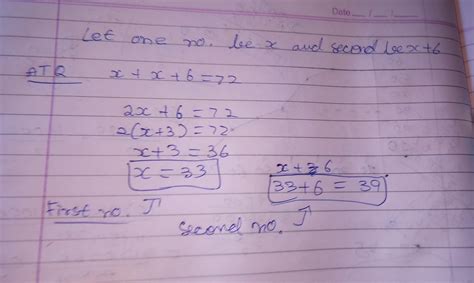 Date / /
Let one no. be x and second be x+6
ATQ x + x + 6 = 72
2x + 6 = 72
2(x+3) = 72
x+3 = 36
x = 33
x+36
33+6 = 39
First no.
Second no.